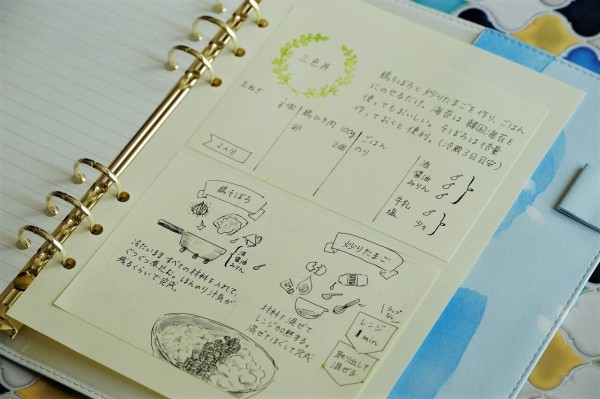 三色丼
鶏そぼろと炒りたまごを作り、ごはん
にのせるだけ。海苔は韓国海苔を
使ってもおいしい。そぼろは倍量
作っておくと便利。(冷蔵3日目安)
玉ねぎ
鶏ひき肉 100g
卵 2個
ごはん
のり
酒
醤油
みりん
牛乳
塩 少々
2人分
鶏そぼろ
酒
醤油
みりん
冷たいまますべての材料を入れて、
ぐつぐつ煮込む。ほんのり汁気が
残るくらいで完成。
炒りたまご
材料を混ぜて
レンジ加熱する。
混ぜてほぐして完成
ラップ
なし
レンジ
1min
取り出して
混ぜる